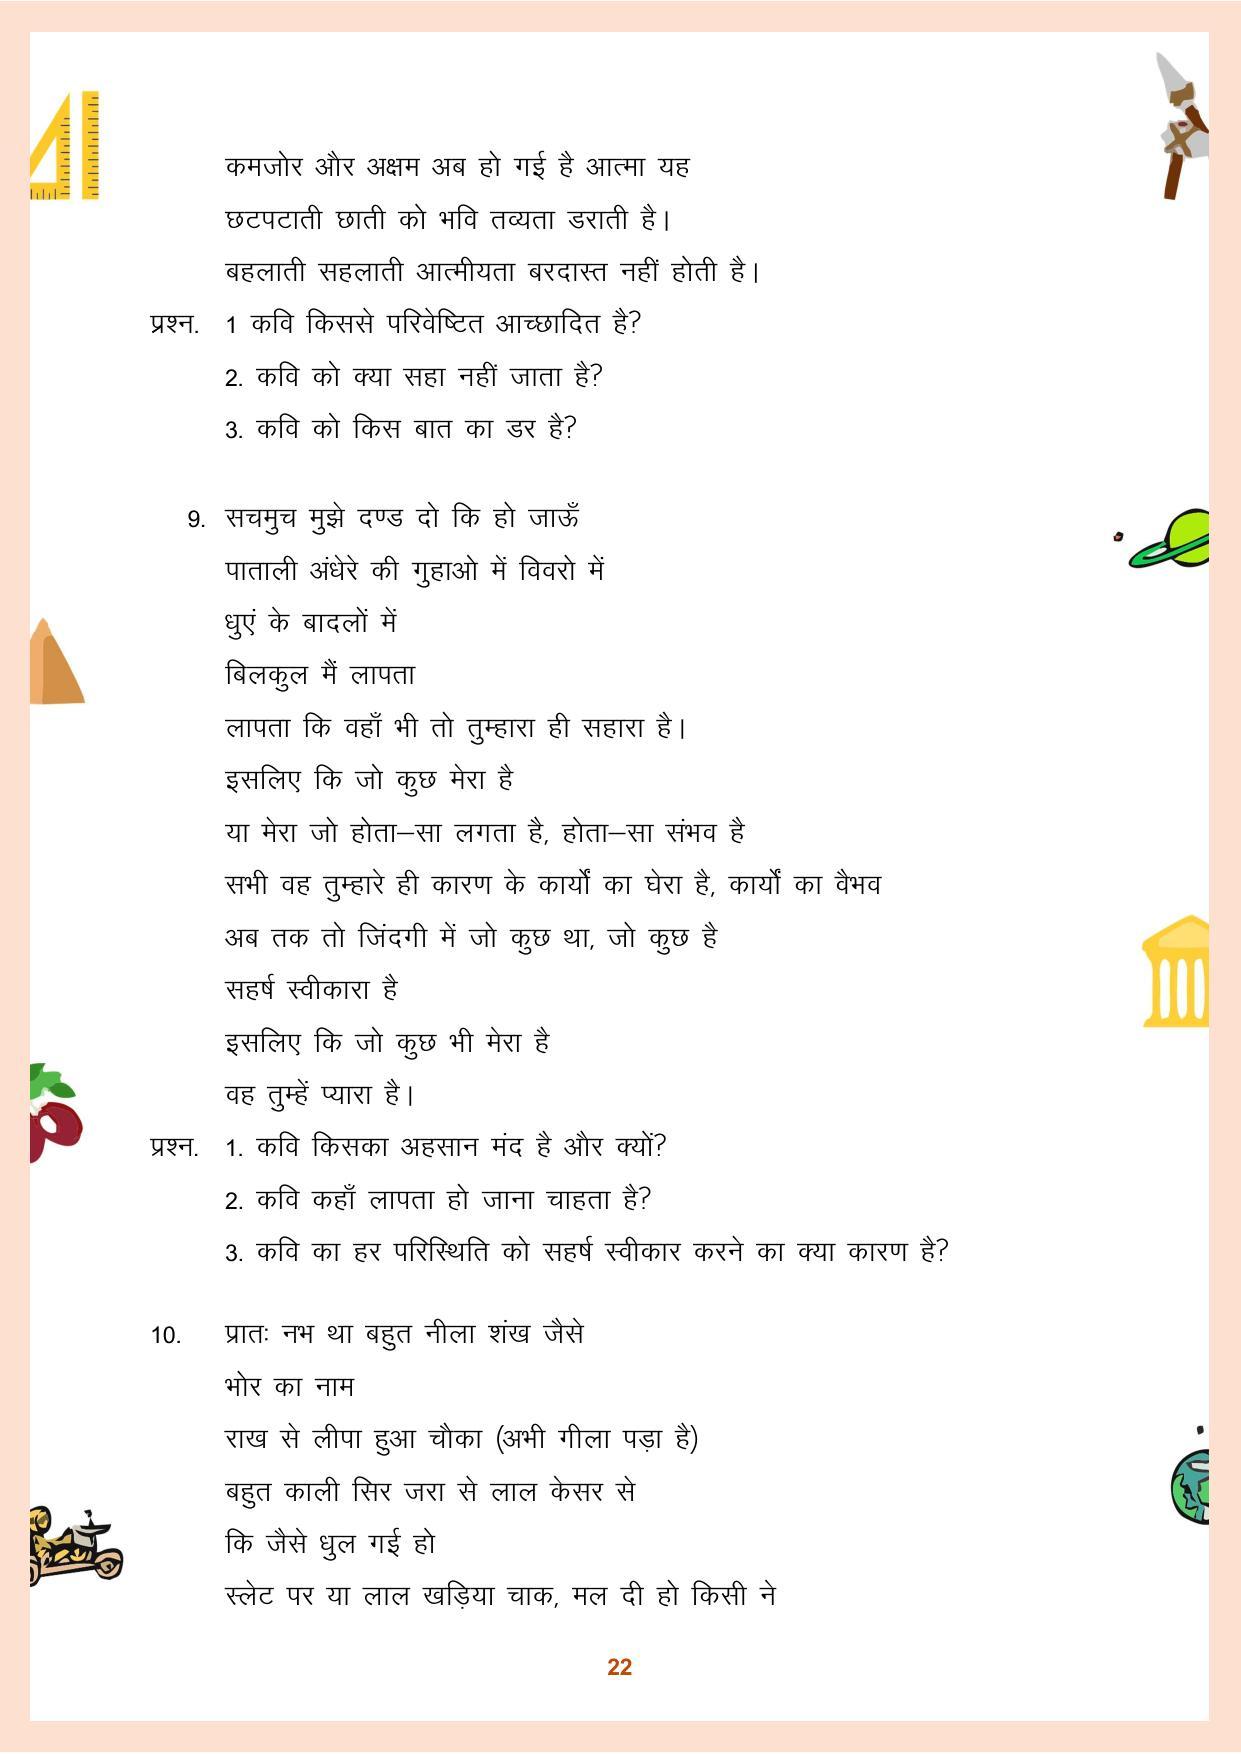 कमजोर और अक्षम अब हो गई है आत्मा यह
छटपटाती छाती को भवि तव्यता डराती है।
बहलाती सहलाती आत्मीयता बरदास्त नहीं होती है।
प्रश्न. 1 कवि किससे परिवेष्टित आच्छादित है?
2. कवि को क्या सहा नहीं जाता है?
3. कवि को किस बात का डर है?
9. सचमुच मुझे दण्ड दो कि हो जाऊँ
पाताली अंधेरे की गुहाओ में विवरो में
धुएं के बादलों में
बिलकुल मैं लापता
लापता कि वहाँ भी तो तुम्हारा ही सहारा है।
इसलिए कि जो कुछ मेरा है
या मेरा जो होता–सा लगता है, होता–सा संभव है
सभी वह तुम्हारे ही कारण के कार्यों का घेरा है, कार्यों का वैभव
अब तक तो जिंदगी में जो कुछ था, जो कुछ है
सहर्ष स्वीकारा है
इसलिए कि जो कुछ भी मेरा है
वह तुम्हें प्यारा है।
प्रश्न. 1. कवि किसका अहसान मंद है और क्यों?
2. कवि कहाँ लापता हो जाना चाहता है?
3. कवि का हर परिस्थिति को सहर्ष स्वीकार करने का क्या कारण है?
10. प्रातः नभ था बहुत नीला शंख जैसे
भोर का नाम
राख से लीपा हुआ चौका (अभी गीला पड़ा है)
बहुत काली सिर जरा से लाल केसर से
कि जैसे धुल गई हो
स्लेट पर या लाल खड़िया चाक, मल दी हो किसी ने
22